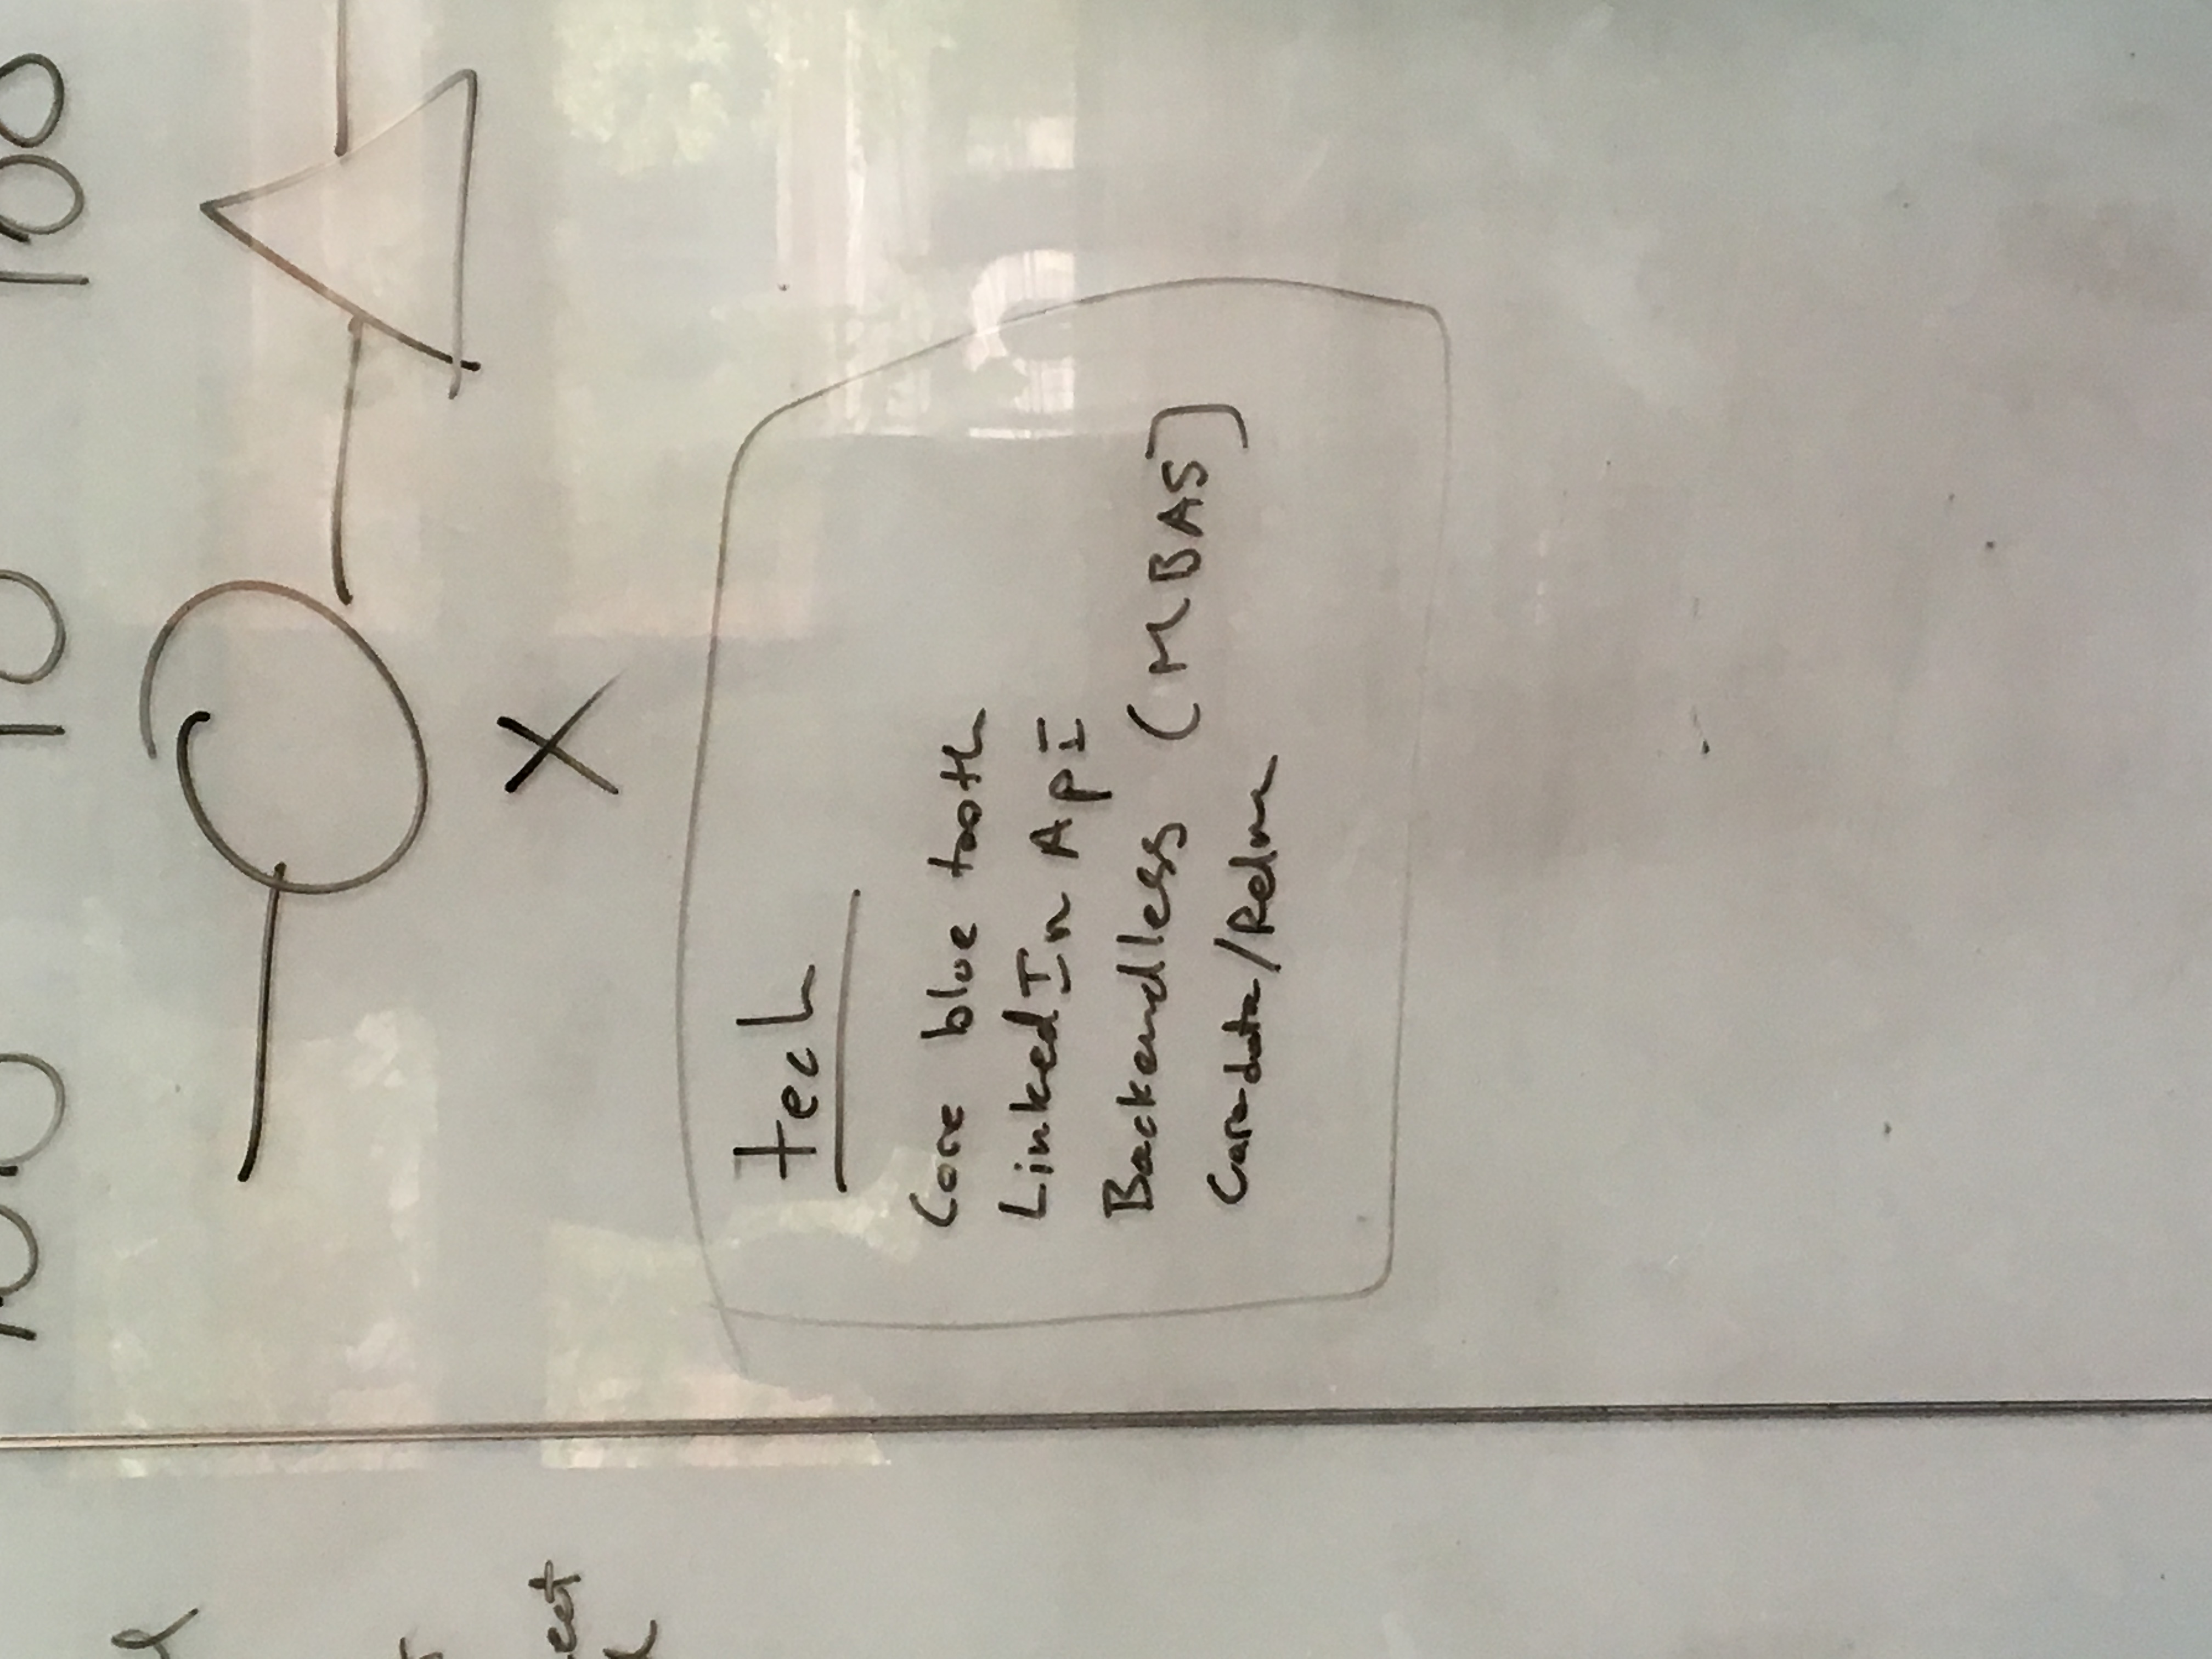 100 10 100
ect
X
tech
Core blue tooth
LinkedIn ApI
Backendless (MBAS]
Coredata/Relm